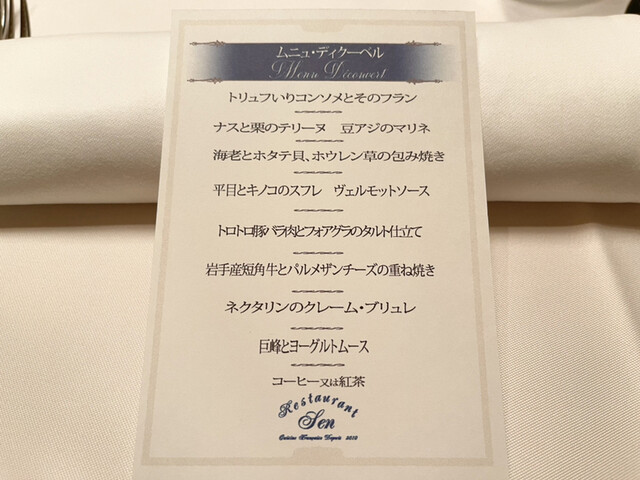 ムニュ・ディクーベル
Menu Déconvert
トリュフいりコンソメとそのフラン
ナスと栗のテリーヌ　豆アジのマリネ
海老とホタテ貝、ホウレン草の包み焼き
平目とキノコのスフレ　ヴェルモットソース
トロトロ豚バラ肉とフォアグラのタルト仕立て
岩手産短角牛とパルメザンチーズの重ね焼き
ネクタリンのクレーム・ブリュレ
巨峰とヨーグルトムース
コーヒー又は紅茶
Restaurant
Sen
Cuisine Française Depuis 2010